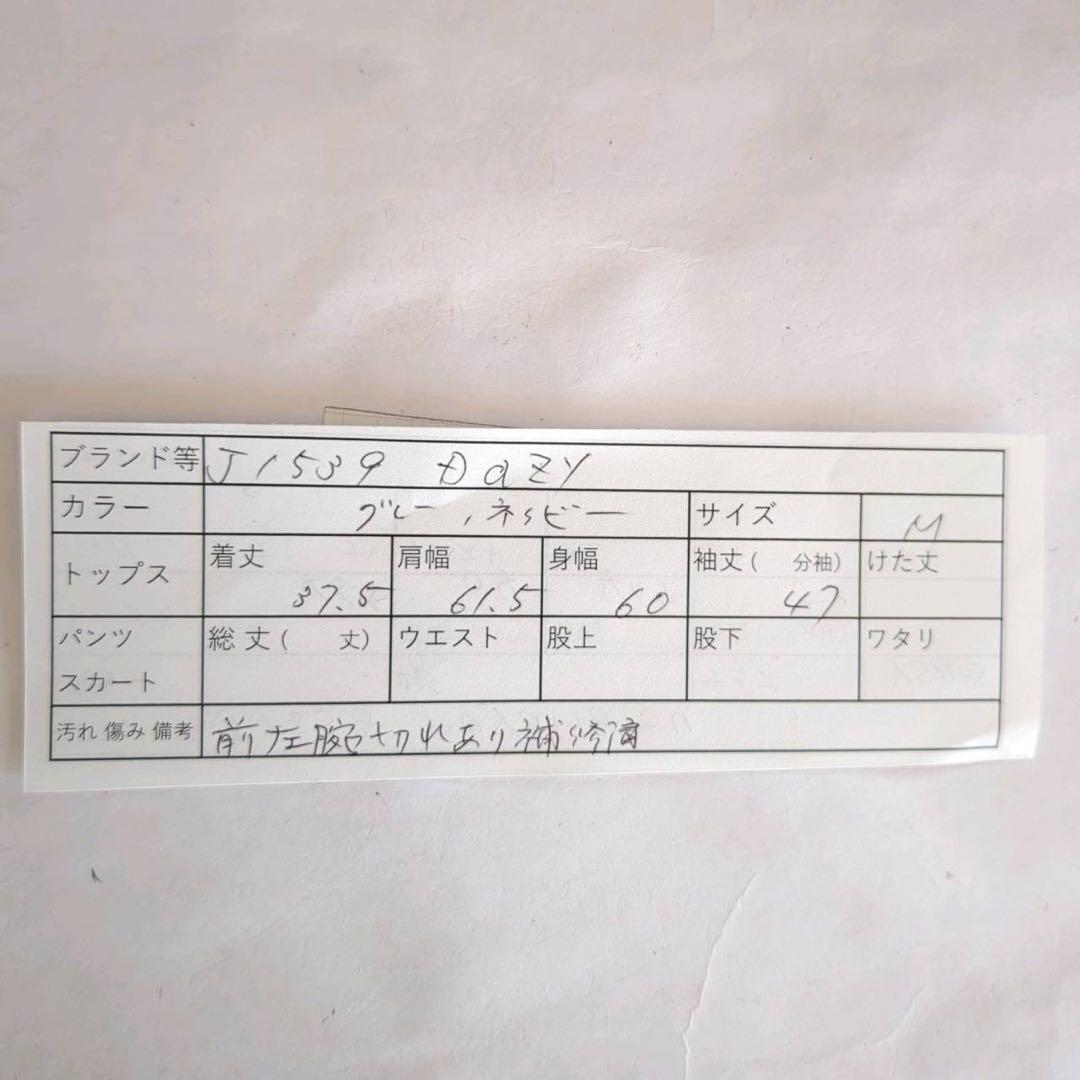 ブランド等 J1539 DaZY
カラー グレー、ネイビー サイズ M
トップス 着丈 37.5 肩幅 61.5 身幅 60 袖丈( 分袖) 47 けた丈
パンツ スカート 総丈( 丈) ウエスト 股上 股下 ワタリ
汚れ 傷み 備考 前左腕切れあり補修済